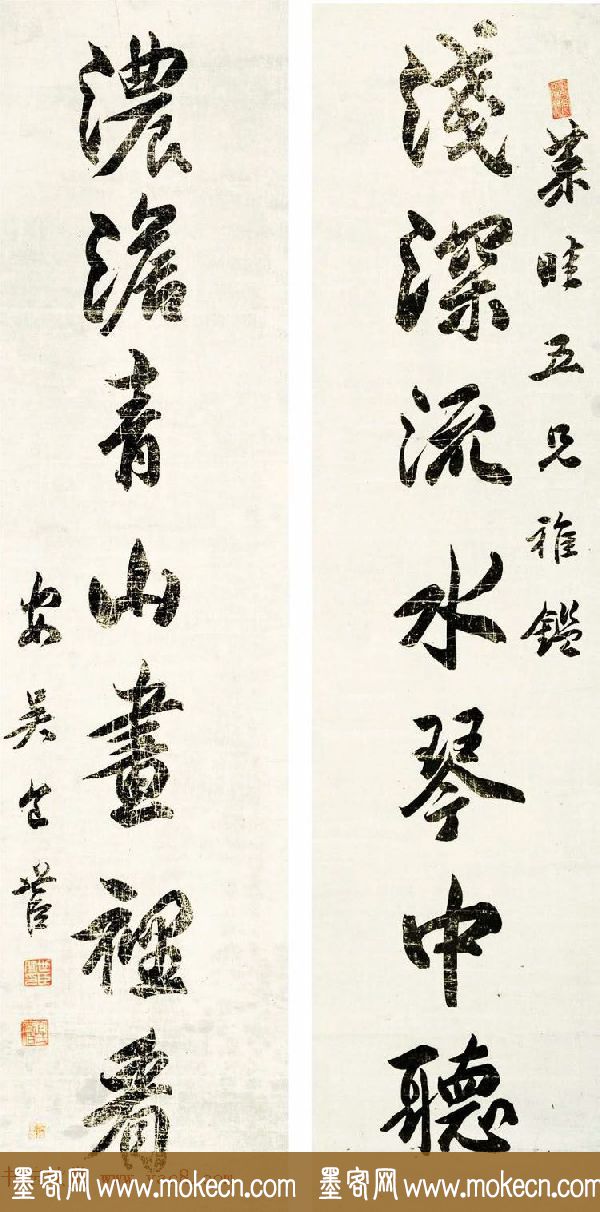 菜畦五兄雅鑑
淺深流水琴中聽
濃澹青山畫裡看
安吳包世臣
墨客网 www.mokecn.com
墨客网 www.mokecn.com